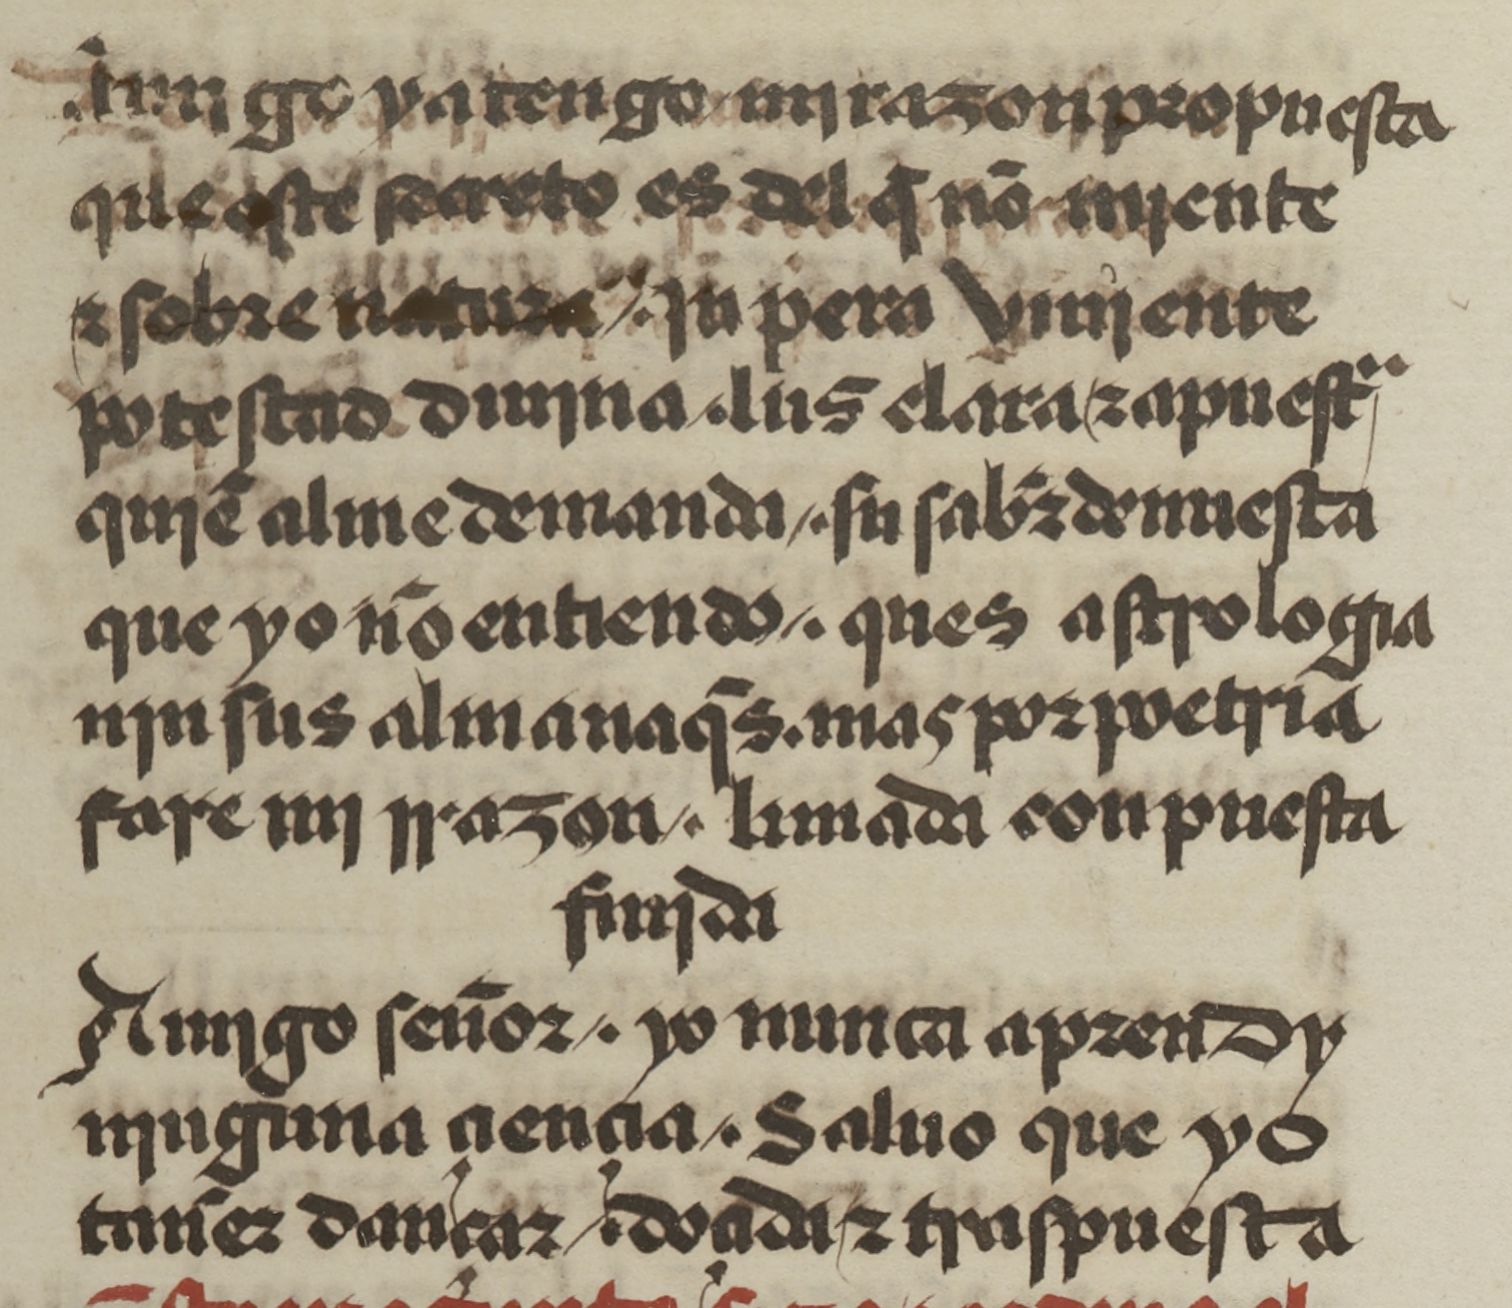 Amigo ya tengo mi razon propuesta
que este secreto es del q̃ nõ mjente
⁊ sobre natura /. In pera viujente
potestad diujna . lus clara ⁊ apuesta
qujẽ al me demanda /. su sab̃r demuesta
que yo nõ entiendo /. ques astrologia
njn sus almanaq̃s . mas por poetria
fare mj rrazon /. limada conpuesta
finjda
Amigo señor /. yo nunca aprendy
njnguna çiençia /. Saluo que yo
tañer dançar /. doada ⁊ traspuesta